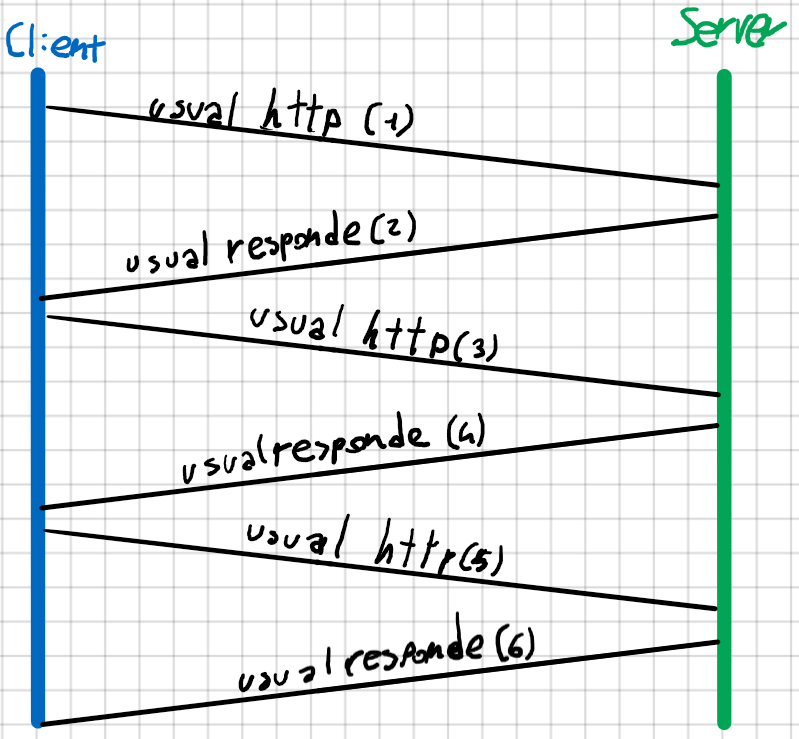 Client
Server
usual http (1)
usual responde (2)
usual http (3)
usual responde (4)
usual http (5)
usual responde (6)